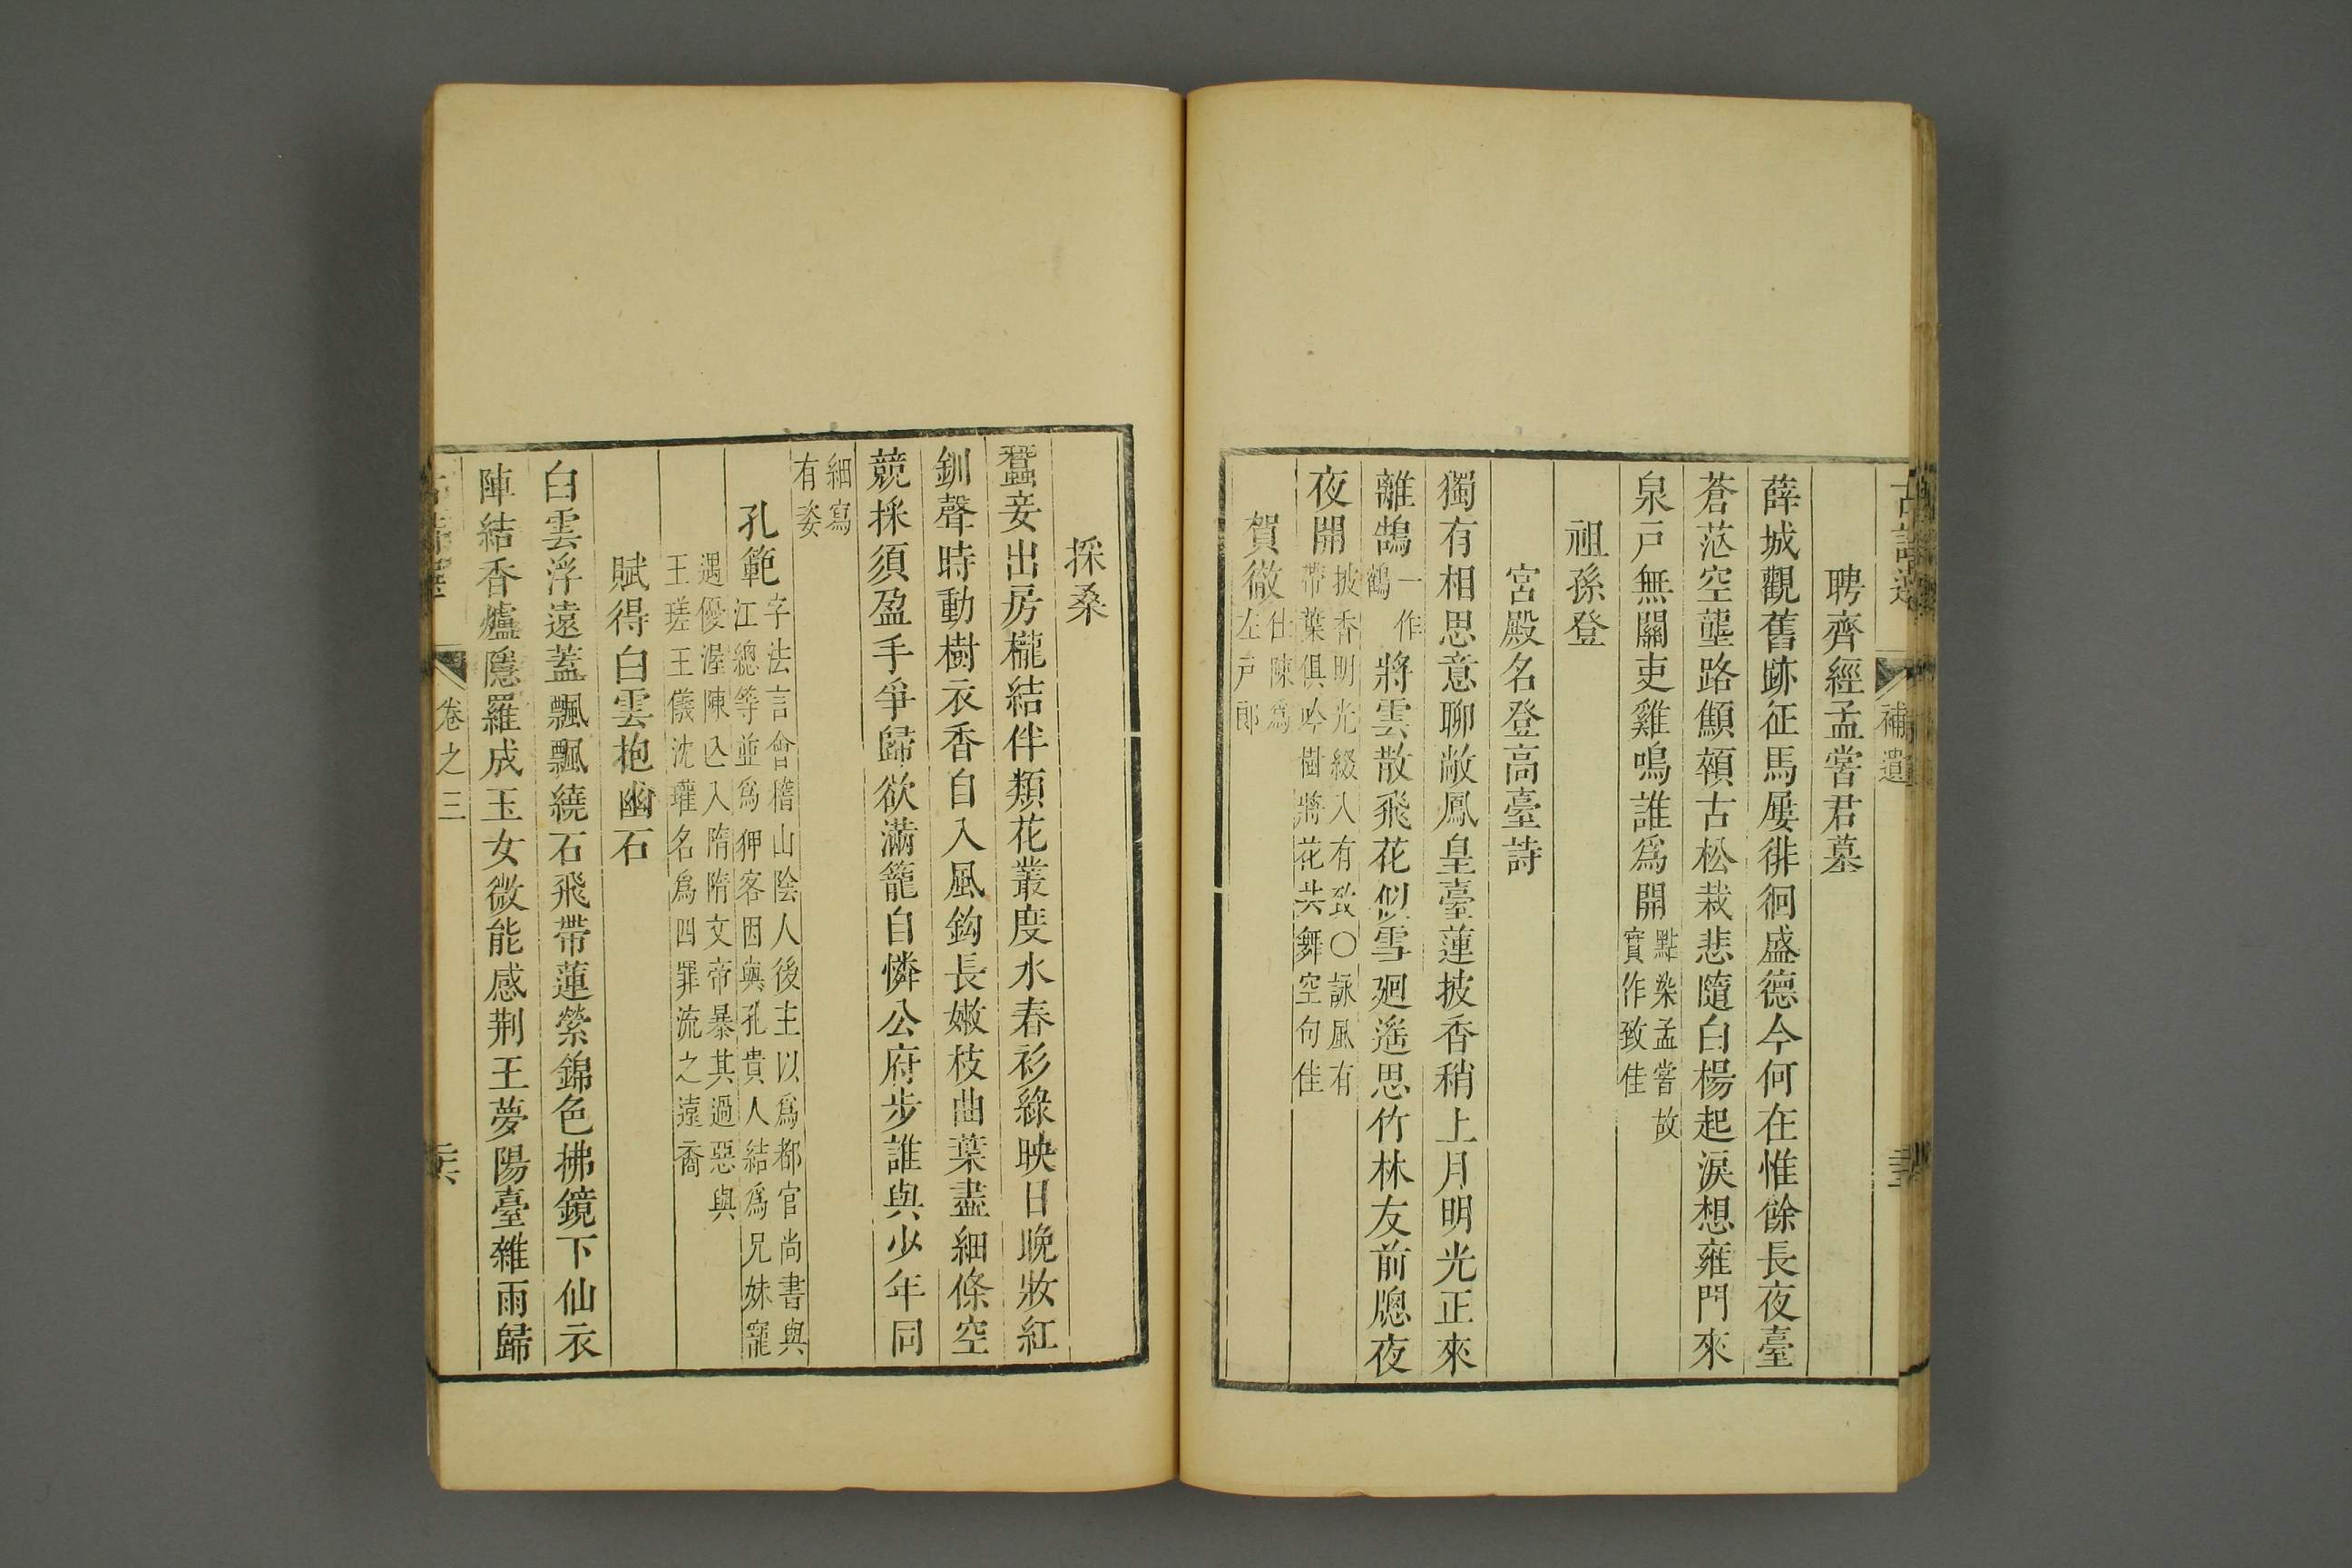 補遺
聘齊經孟嘗君墓
薛城觀舊跡征馬屢徘徊盛德今何在惟餘長夜臺
蒼茫空壟路顦顇古松栽悲隨白楊起淚想雍門來
泉戸無關吏雞鳴誰爲開
點染孟嘗故
實作致佳
祖孫登
宮殿名登高臺詩
獨有相思意聊敞鳳皇臺蓮披香稍上月明光正來
離鵠一作鶴將雲散飛花似雪廻遙思竹林友前牕夜
夜開
披香明光綴入有致○詠風有
帶葉俱吟樹將花共舞空句佳
賀徹
仕陳爲
左戸郎
採桑
蠶妾出房櫳結伴類花叢度水春衫綠映日晚妝紅
釧聲時動樹衣香自入風鉤長嫩枝曲葉盡細條空
競採須盈手爭歸欲滿籠自憐公府步誰與少年同
細寫
有姿
孔範
字法言會稽山陰人後主以爲都官尚書與
江總等並爲狎客因與孔貴人結爲兄妹寵
遇優渥陳亾入隋隋文帝暴其過惡與
王瑳王儀沈瓘名爲四罪流之遠裔
賦得白雲抱幽石
白雲浮遠蓋飄飄繞石飛帶蓮縈錦色拂鏡下仙衣
陣結香爐隱羅成玉女微能感荆王夢陽臺雜雨歸
卷之三